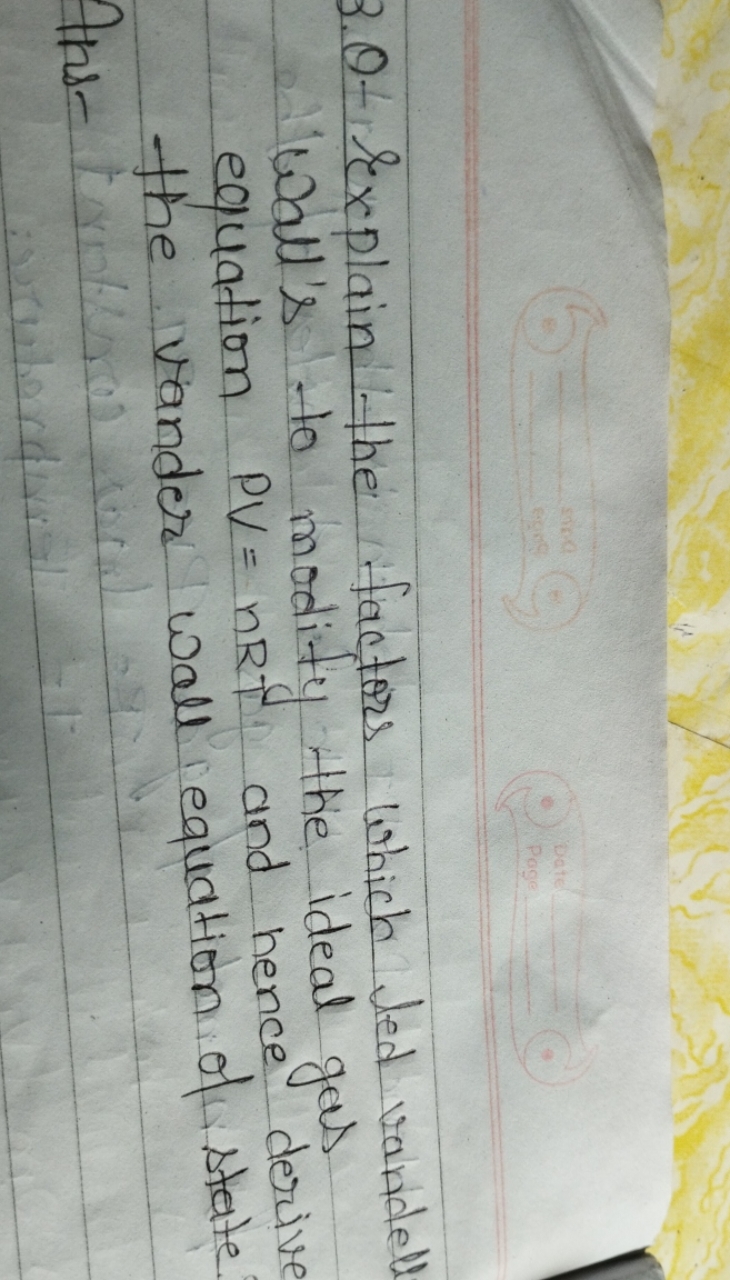 Date
Page
Date
Page
3.Q- Explain the factors which led vandell
wall's to modify the ideal gas
equation PV = nRT and hence derive
the vander wall equation of state.
Ans-